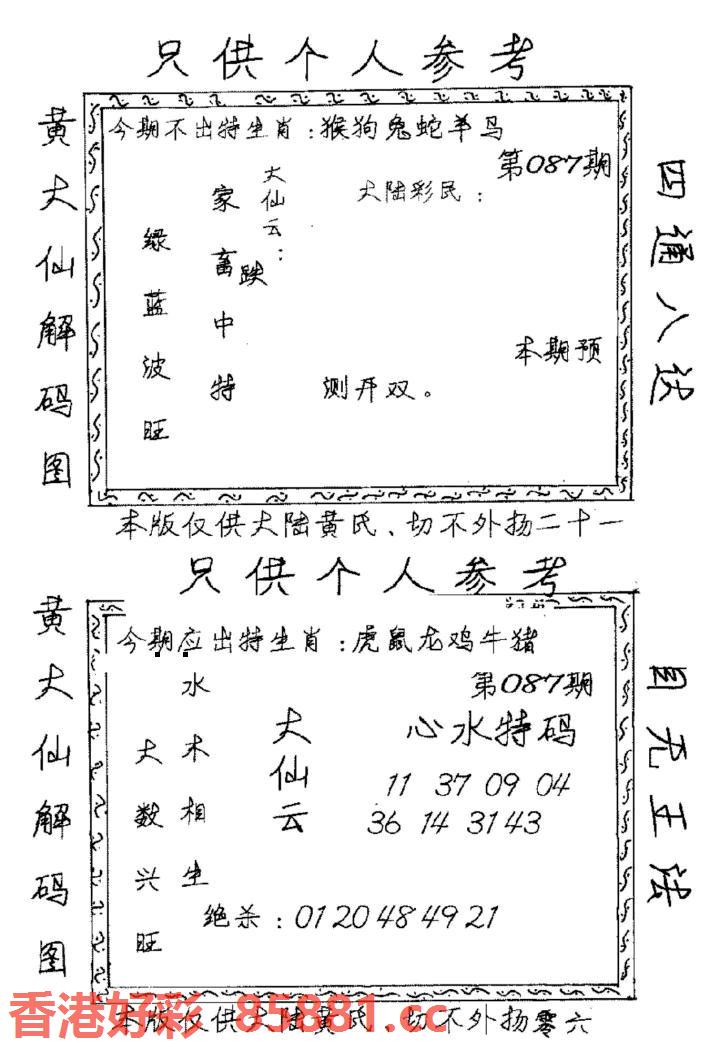 只供个人参考
黄大仙解码图
今期不出特生肖：猴狗兔蛇羊马
第087期
大仙云：
大陆彩民：
家畜中特
跌
绿蓝波旺
本期预
测开双。
四通八达
本版仅供大陆黄氏、切不外扬二十一
只供个人参考
黄大仙解码图
今期应出特生肖：虎鼠龙鸡牛猪
第087期
水木相生
大数兴旺
大仙云
心水特码
11 37 09 04
36 14 31 43
绝杀：01 20 48 49 21
目无王法
本版仅供大陆黄氏、切不外扬零六
香港好彩 85881.cc